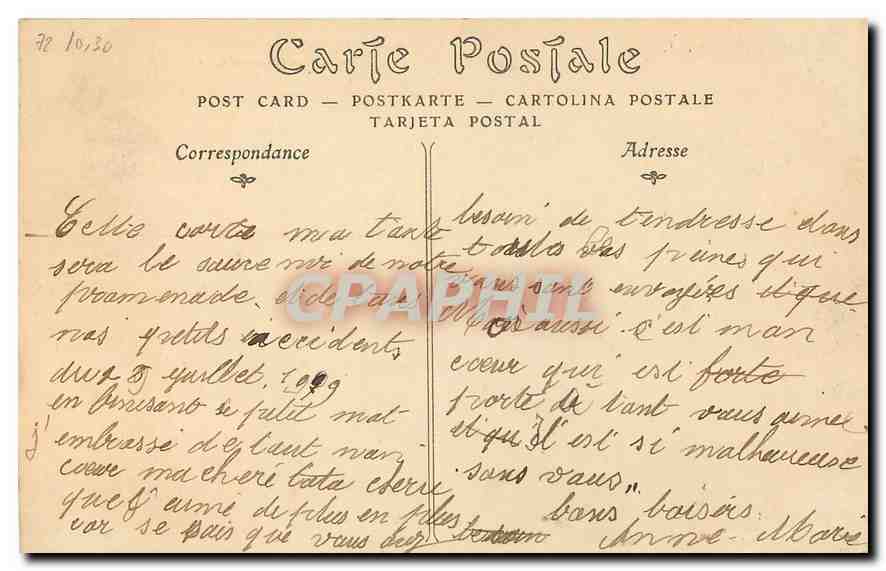 72 10,30
Carte Postale
POST CARD — POSTKARTE — CARTOLINA POSTALE
TARJETA POSTAL
Correspondance
Adresse
Cette carte ma tante
sera le souvenir de notre
promenade, et de tous
nos petits accidents
du 8 juillet. 1909
en finissant se petit mot
j'embrasse de tout mon
coeur ma cheré tata cherie
que j'aime de plus en plus
car je sais que vous avez besoin
besoin de tendresse dans
toutes vos peines qui
vous sont envoyées et que
Moi aussi c'est mon
cœur qui est forte
porte à tant vous aimer
et qu'il est si malheureuse
sans vous"
bons baisers
Anne-Marie
CPAPHIL